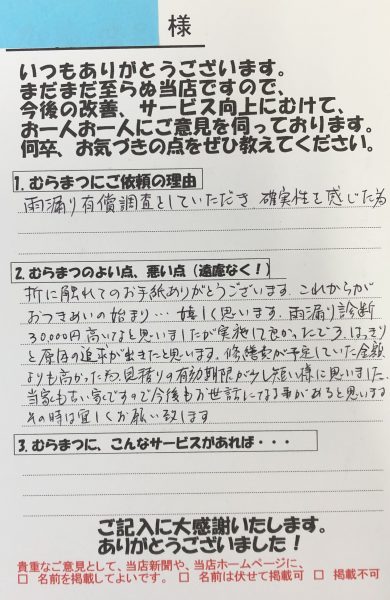 様
いつもありがとうございます。
まだまだ至らぬ当店ですので、
今後の改善、サービス向上にむけて、
お一人お一人にご意見を伺っております。
何卒、お気づきの点をぜひ教えてください。
1. むらまつにご依頼の理由
雨漏り有償調査をしていただき 確実性を感じた為
2. むらまつのよい点、悪い点（遠慮なく！）
折に触れてのお手紙ありがとうございます。これからが
おつきあいの始まり…嬉しく思います。雨漏り診断
30,000円高いなと思いましたが実施して良かったです。はっきり
と原因の追求が出来たと思います。修繕費が予定していた金額
よりも高かった為、見積りの有効期限が少し短い様に思いました。
当家も古い家ですので今後もお世話になる事があると思います
その時は宜しくお願い致します
3. むらまつに、こんなサービスがあれば・・・
ご記入に大感謝いたします。
ありがとうございました！
貴重なご意見として、当店新聞や、当店ホームページに、
□ 名前を掲載してよいです。 □ 名前は伏せて掲載可 □ 掲載不可